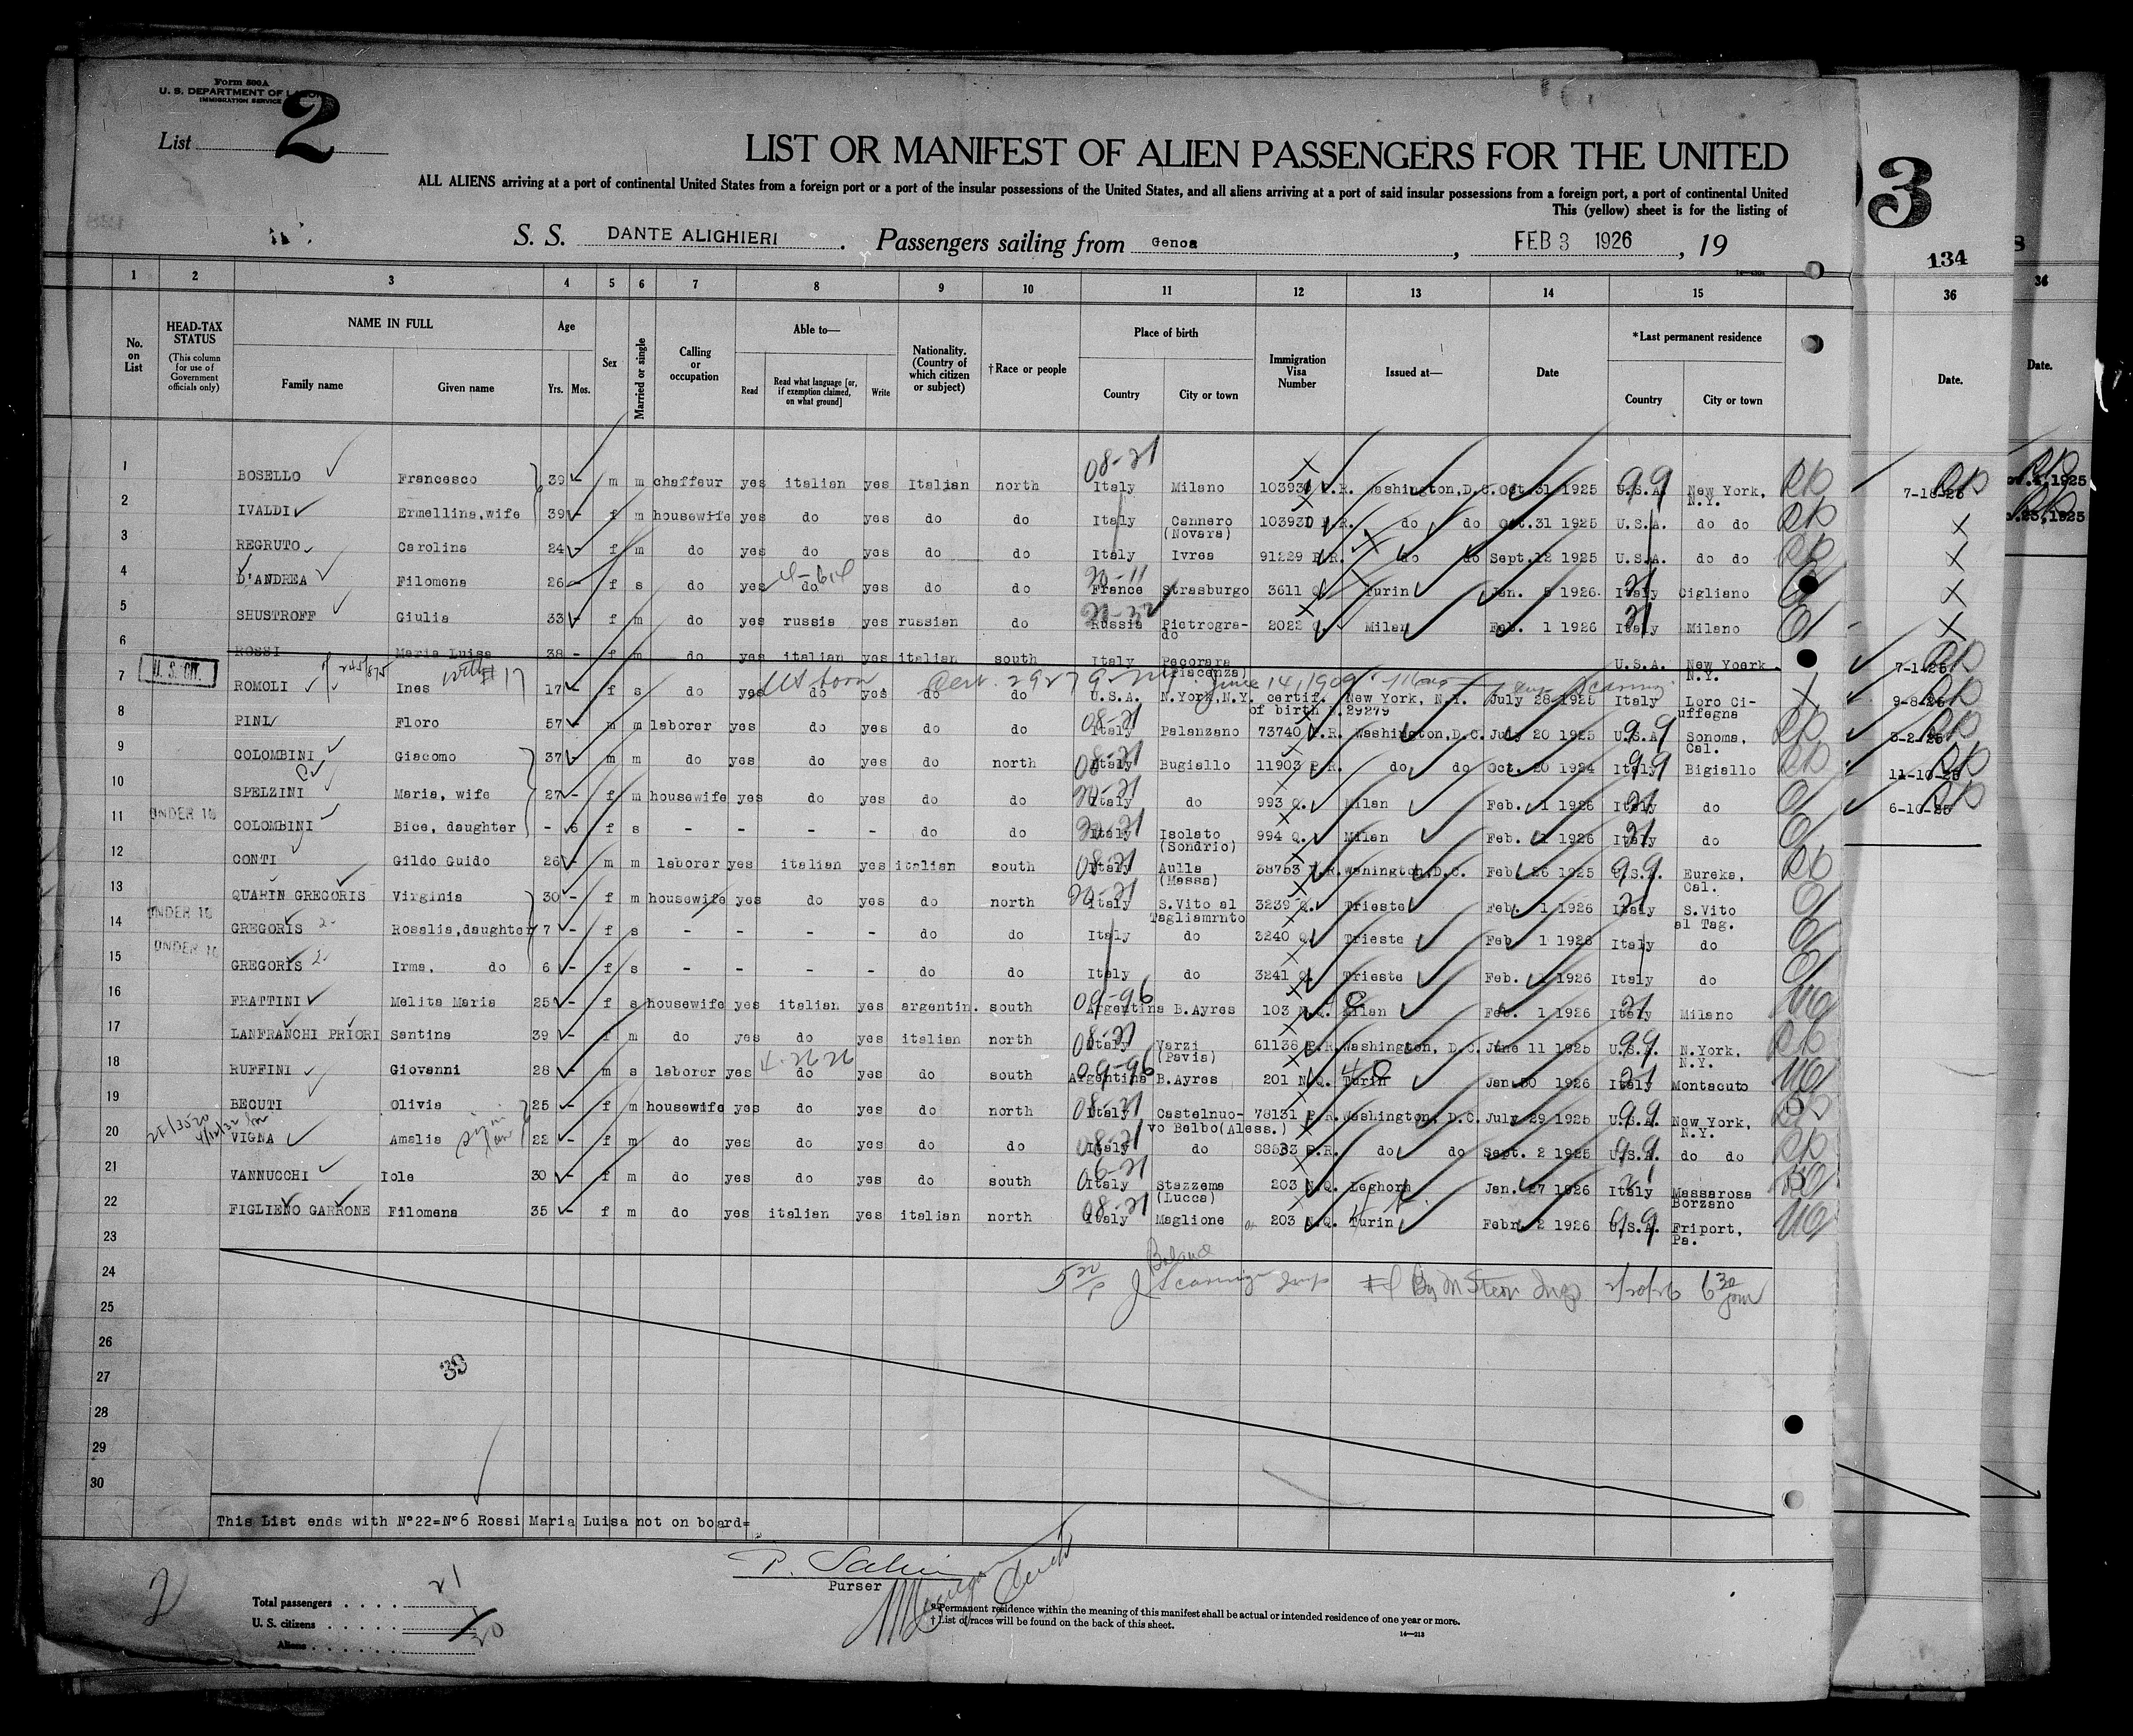 Form 500A
U. S. DEPARTMENT OF LABOR
IMMIGRATION SERVICE
List 2
LIST OR MANIFEST OF ALIEN PASSENGERS FOR THE UNITED
ALL ALIENS arriving at a port of continental United States from a foreign port or a port of the insular possessions of the United States, and all aliens arriving at a port of said insular possessions from a foreign port, a port of continental United
This (yellow) sheet is for the listing of
S. S. DANTE ALIGHIERI . Passengers sailing from Genoa , FEB 3 1926 , 19
3
134
1 2 3 4 5 6 7 8 9 10 11 12 13 14 15 36 36
No. on List
HEAD-TAX STATUS
(This column for use of Government officials only)
NAME IN FULL
Family name Given name
Age
Yrs. Mos.
Sex
Married or single
Calling or occupation
Able to—
Read
Read what language [or, if exemption claimed, on what ground]
Write
Nationality. (Country of which citizen or subject)
†Race or people
Place of birth
Country City or town
Immigration Visa Number
Issued at—
Date
*Last permanent residence
Country City or town
Date. Date.
1 BOSELLO Francesco 39 - m m chaffeur yes italian yes Italian north 08-21 Italy Milano 103930 P.R. Washington,D.C. Oct.31 1925 99 U.S.A. New York, N.Y. RP
2 IVALDI Ermellina,wife 39 - f m housewife yes do yes do do Italy Cannero (Novara) 103931 P.R. do do Oct.31 1925 U.S.A. do do RP
3 REGRUTO Carolina 24 - f m do yes do yes do do Italy Ivrea 91229 P.R. do do Sept.12 1925 U.S.A. do do RP
4 D'ANDREA Filomena 26 - f s do yes do yes do do France Strasburgo 3611 Q. Turin Jan. 5 1926. 21 Italy Cigliano Q
5 SHUSTROFF Giulia 33 - f m do yes russia yes russian do Russia Pietrogra-do 2022 Q. Milan Feb. 1 1926 21 Italy Milano Q
6 ROSSI Maria Luisa 38 - f m do yes italian yes italian south Italy Pecorara (Piacenza) U.S.A. New Yoerk N.Y.
U. S. CIT.
7 ROMOLI Ines with # 17 17 - f s do yes do yes do do U.S.A. N.York,N.Y. certif. of birth N.29279 New York, N.Y. July 28 1925 Italy Loro Ci-uffegna
US born Cert. 29279 June 14, 1909
8 PINI Floro 57 - m m laborer yes do yes do do 08-21 Italy Palanzano 73740 P.R. Washington,D.C. July 20 1925 99 U.S.A. Sonoma, Cal. RP
9 COLOMBINI Giacomo 37 - m m do yes do yes do north 08-21 Italy Bugiallo 11903 P.R. do do Oct. 20 1924 99 Italy Bigiallo RP
10 SPELZINI Maria, wife 27 - f m housewife yes do yes do do 20-21 Italy do 993 Q. Milan Feb. 1 1926 21 Italy do Q
UNDER 16
11 COLOMBINI Bice, daughter - 6 f s - - - - do do 20-21 Italy Isolato (Sondrio) 994 Q. Milan Feb. 1 1926 21 Italy do Q
12 CONTI Gildo Guido 26 - m m laborer yes italian yes italian south 08-21 Italy Aulla (Massa) 38753 P.R. Wanington,D.C. Feb. 26 1925 99 U.S.A. Eureka, Cal. RP
13 QUARIN GREGORIS Virginia 30 - f m housewife yes do yes do north 20-21 Italy S.Vito al Tagliamrnto 3239 Q. Trieste Feb. 1 1926 21 Italy S.Vito al Tag. Q
UNDER 16
14 GREGORIS Rosalia,daughter 7 - f s - - - - do do Italy do 3240 Q. Trieste Feb. 1 1926 Italy do Q
UNDER 16
15 GREGORIS Irma, do 6 - f s - - - - do do Italy do 3241 Q. Trieste Feb. 1 1926 Italy do Q
16 FRATTINI Melita Maria 25 - f s housewife yes italian yes argentin. south 09-96 Argentina B.Ayres 103 N.Q. Milan Feb. 1 1926 21 Italy Milano NQ
17 LANFRANCHI PRIORI Santina 39 - f m do yes do yes italian north 08-21 Italy Varzi (Pavia) 61138 P.R. Washington, D.C. June 11 1925 99 U.S.A. N.York, N.Y. RP
4-26 26
18 RUFFINI Giovanni 28 - m s laborer yes do yes do south 09-96 Argentina B.Ayres 201 N.Q. Turin Jan.30 1926 21 Italy Montacuto NQ
19 BECUTI Olivia 25 - f m housewife yes do yes do north 08-21 Italy Castelnuo-vo Belbo(Aless.) 78131 P.R. Washington, D.C. July 29 1925 99 U.S.A. New York, N.Y. RP
20 VIGNA Amalia 22 - f m do yes do yes do do 08-21 Italy do 88533 P.R. do do Sept. 2 1925 99 U.S.A. do do RP
21 VANNUCCHI Iole 30 - f m do yes do yes do south 06-21 Italy Stazzema (Lucca) 203 N.Q. Leghorn Jan. 27 1926 21 Italy Massarosa Borzano NQ
22 FIGLIENO GARRONE Filomena 35 - f m do yes italian yes italian north 08-21 Italy Maglione 203 N.Q. Turin Febr. 2 1926 99 U.S.A. Friport, Pa. NQ
23
24
25
26
27
28
29
30
2/20/26 6 30 pm
39
7-18-25
7-1-25
9-8-25
8-2-25
11-10-25
6-10-25
.23,1925
This List ends with N°22=N°6 Rossi Maria Luisa not on board=
Purser
2
Total passengers . . . . 21
U. S. citizens . . . . . 1
Aliens . . . . . 20
*Permanent residence within the meaning of this manifest shall be actual or intended residence of one year or more.
† List of races will be found on the back of this sheet.
14—213